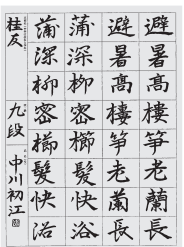 避暑高樓笋老蘭長
避暑高樓笋老蘭長
蒲深柳密櫛髮快浴
蒲深柳密櫛髮快浴
桂友 九段 中川初江